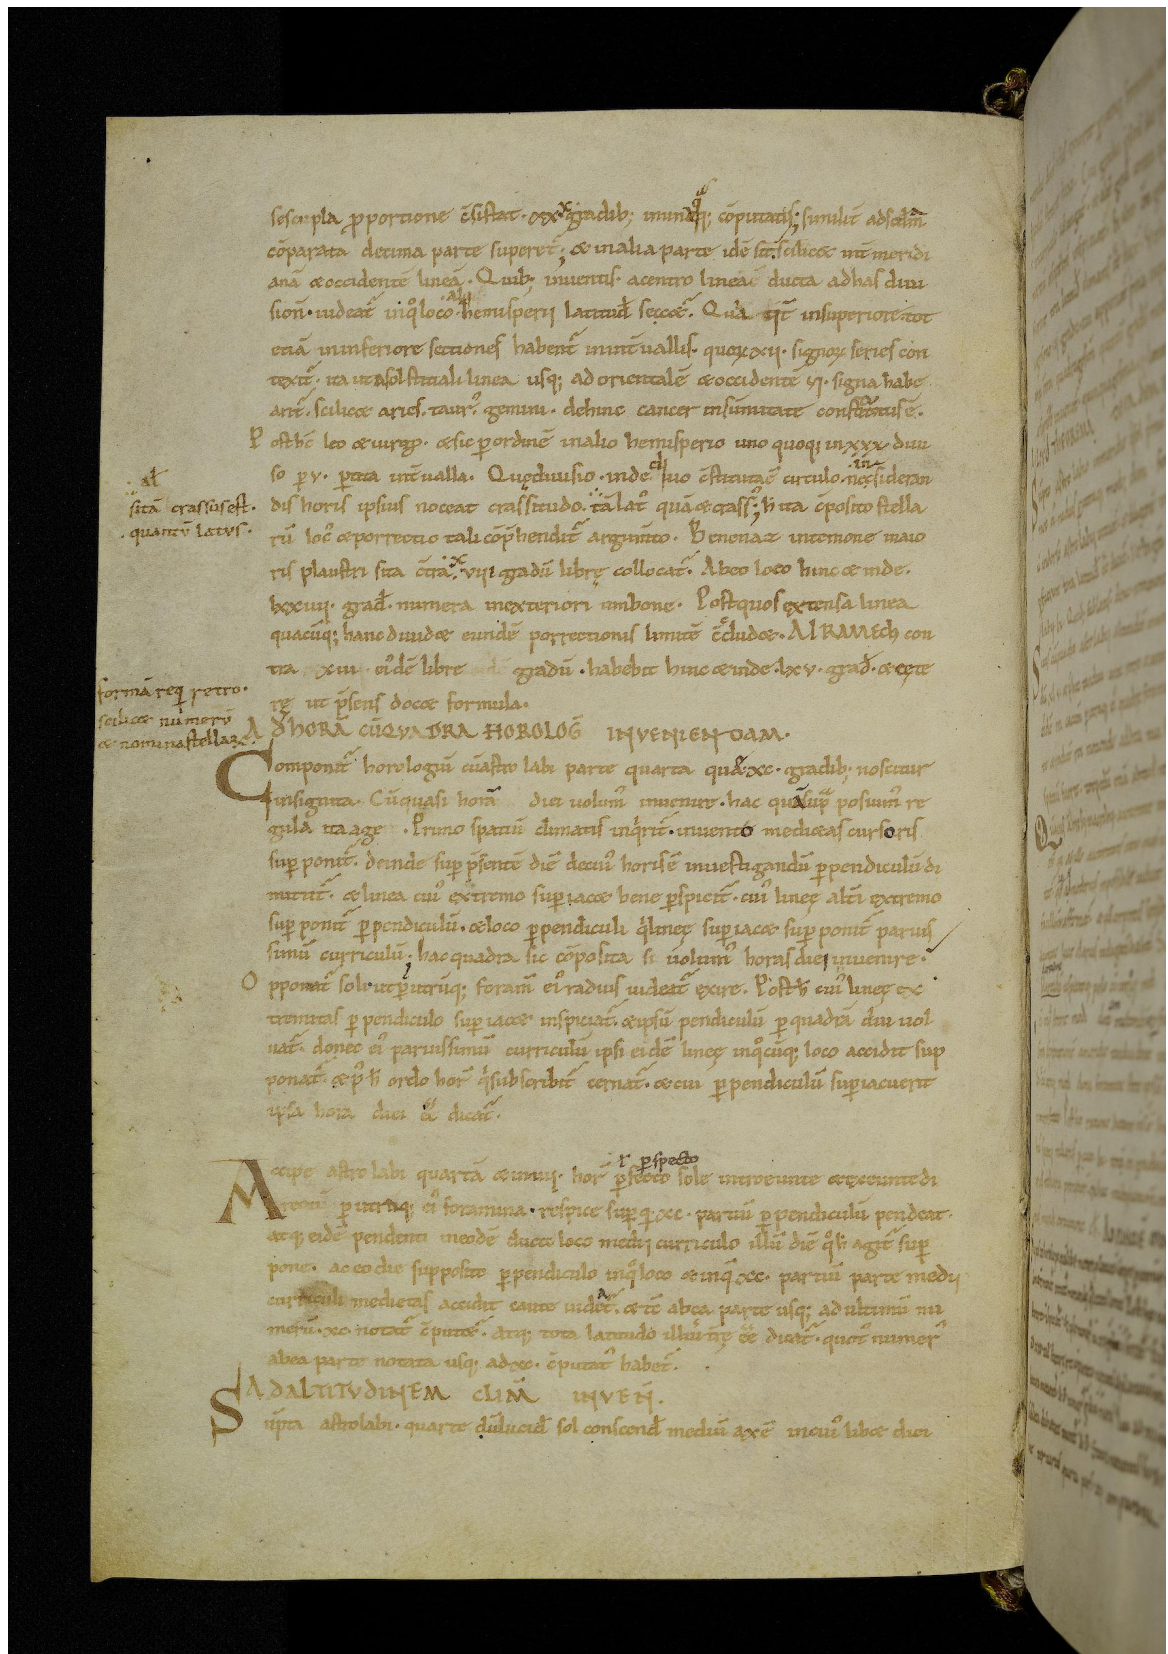 sescupla ꝓportione c̄sistat · xxx gradib; in unaq̄q; cōputatis; similit̄ adsolem̄
cōparata decima parte superet; & in alia parte idē sit scilic& int̄ meridi
anā & occidentē lineā · Quib; inventis · a centro lineae ducta ad has divi
sion̄ · videat̃ in q̊ loco hemisperii latitud̄ sec&̃ · in superiore tot
etiā in inferiore sectiones habent̃ in int̄ vallis · quoꝝ xii · signoꝝ series con
text̃ · ita ut a solstitiali linea usq; ad orientalē & occidentē vi · signa habe
ant̃ · scilic& aries · taur᾽ gemini · dehinc cancer in sūmitate
P ost h̄c leo & virgo · & sic ꝑ ordinē in alio hemisperio uno quoq; in xxx · divi
so ꝑ v · ꝑtita int̄ valla · Quę divisio · inde clivo c̄stituta ē circulo · ne in c̄sideran
al̄
sitā crassus est ·
· quantū latus ·
dis horis ipsius noceat crassitudo · tā lat᾽ quā & crass᾽; h̄ ita c̄posito stella
rū loc᾽ & porrectio tali cōp̄hendit̃ argum̄to · Benenaz in temone maio
ris plaustri sita c̄tra · xviii gradū librę collocat̃ · Ab eo loco hinc & inde ·
lxxiiii · grad̄ · numera in exteriori umbone · Post quos extensa linea
quacūq; hanc divid& eundē porrectionis limitē c̄clud& · ALRAMECh con
tra xxiii · ei᾽dē libre gradū · habebit hinc & inde · lxv · grad̄ · & cęte
formā req̄ retro ·
scilic& numerū
& nomina stellaꝝ ·
rę ut p̄sens doc& formula ·
AD HORĀ CŪ QVADRA HOROLOḠ INVENIENDAM ·
Componit̃ horologiū cū astrolabi parte quarta quā · xc · gradib; noscitur
insignita · Cū quasi horā diei volum᾽ invenire · hac quā supra posuim᾽ re
gula ita age · Primo spatiū climatis inq̄rit̃ · invento medi&as cursoris
suꝑponit̃ · deinde suꝑ p̄sentē diē de cui᾽ horis ē investigandū ꝑpendiculū di
mittit̃ · & linea cui᾽ extremo suꝑiac& bene ꝑspicit̃ · cui᾽ lineę alt̄i extremo
suꝑponit̃ ꝑpendiculū · & loco ꝑpendiculi q̄ lineę suꝑiac& suꝑponit̃ parvis
simū curriculū · hac quadra sic cōposita si volum᾽ horas diei invenire ·
O pponat̃ soli ut ꝑ utrūq; foram̄ ei᾽ radius videat̃ exire · Post h̄ cui᾽ lineę ex
tremitas ꝑpendiculo suꝑiac& inspiciat̃ · & ipsū pendiculū ꝑ quadrā divol
vat̃ · donec ei᾽ parvissimū curriculū ipsi eidē lineę in q̊cūq; loco accidit sup
ponat̃ · ordo hor̄ q̄ subscribit̃ cernat̃ · & cui ꝑpendiculū suꝑiacuerit
ipsa hora diei e͞e dicat̃ ·
r ꝑspecto
Accipe astrolabi quartā & in vii · hor̄ ꝑfecto sole introeunte & exeunte di
rectū ꝑ utraq; ei᾽ foramina · respice suꝑ q; xc · partiū ꝑpendiculū pendeat ·
atq; eidē pendenti in eodē ducti loco medii curriculo illū diē q̊ h̄ agit̃ sup
pone · ac eo die supposito ꝑpendiculo in q̊ loco & in q̄ xc · partiū parte medii
curriculi medietas accidit caute videat̃ · & c̄ ab ea parte usq; ad ultimū nu
merū · xc · notat̃ c̄putet̃ · atq; tota latitudo illi᾽ t̄rę e͞e dicat̃ · quot᾽ numer᾽
ab ea parte notata usq; ad xc · c̄putat᾽ habet̃ ·
AD ALTITVDINEM CLIM̄ INVEN̄ ·
Sūpta astrolabi · quarte dū lucid̄ sol conscend̄ mediū axē in cui᾽ lib& diei